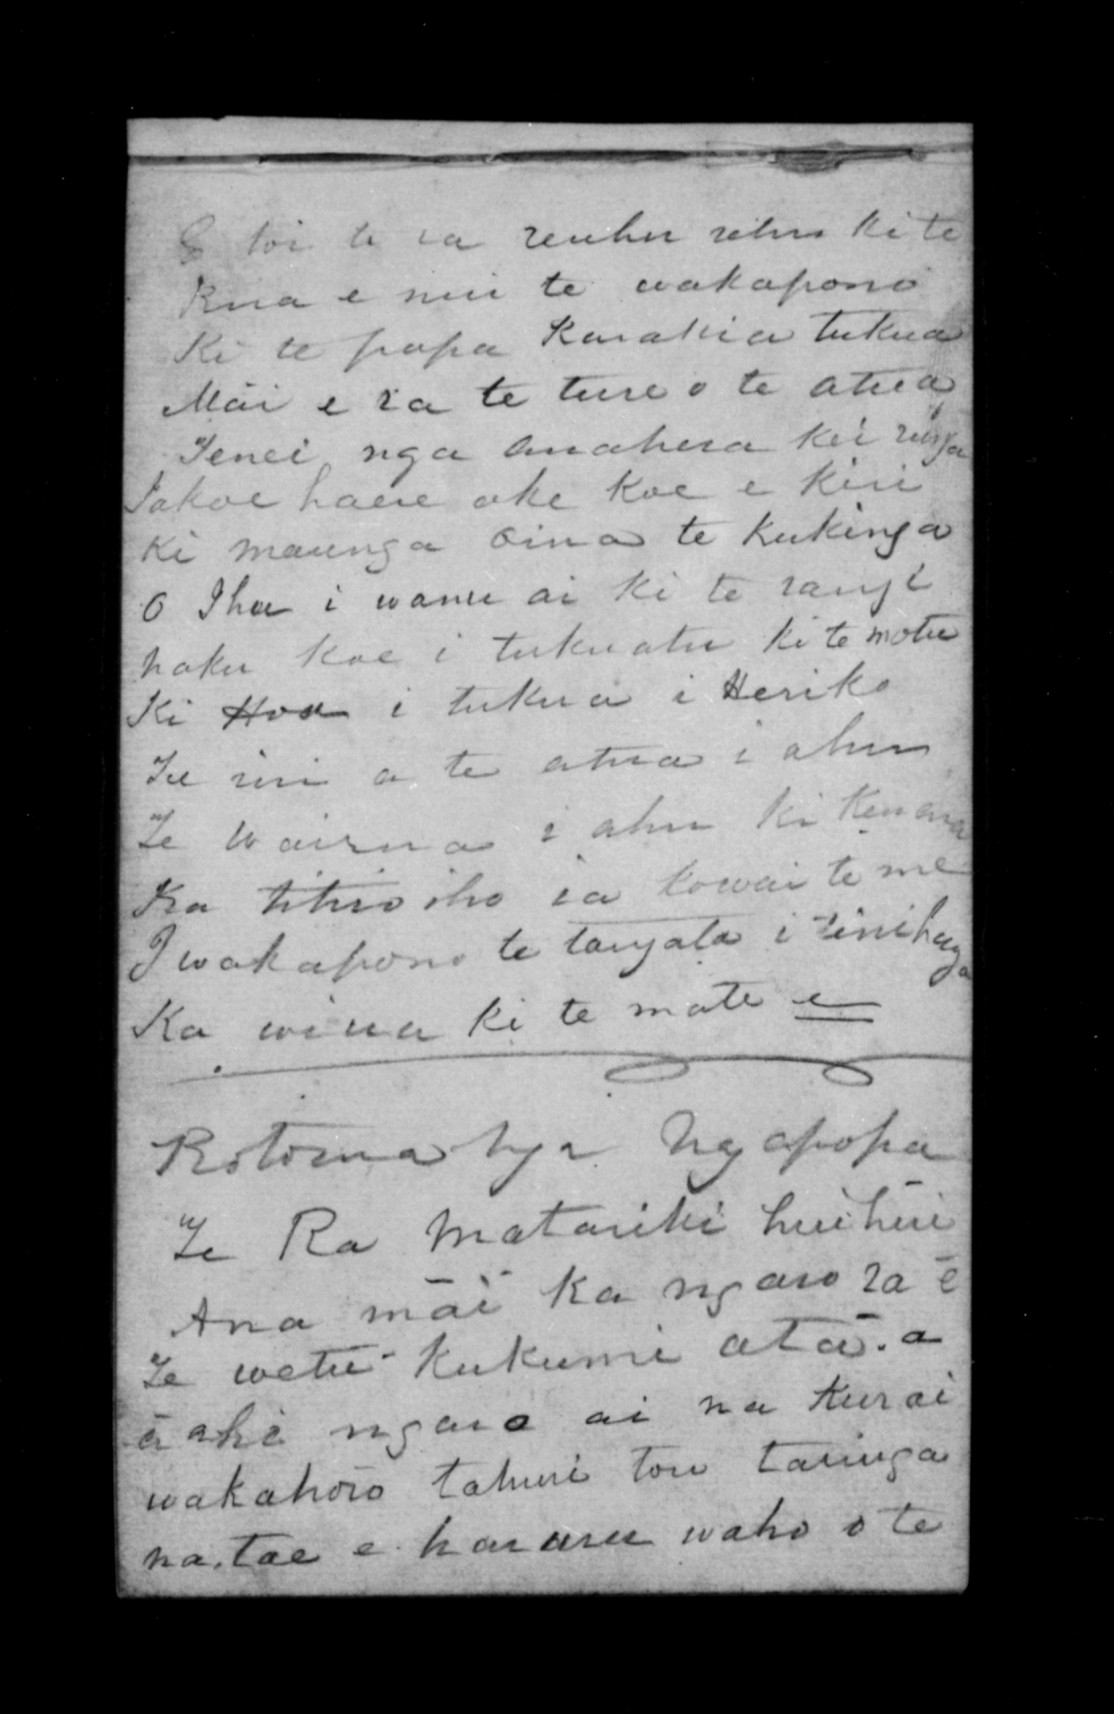 E toi te ra renhu rehu ki te
Rua e nui te wakapono
Ki te popa Karakia tukua
Mai e ra te ture o te atua
Tenei nga Anahera kei runga
Takoe haere ake koe e kiri
Ki maunga Oina te kukinga
O Ihu i wanu ai ki te rangi
haku koe i tukuatu ki te motu
Ki Hoa i tukua i Heriko
Te uri a te atua i ahu
Te Wairua i ahu ki Kenana
Ka titiro iho ia kowai te me
I wakapono te tangata i rinihanga
Ka wiua ki te mate e
Rotorua Ngapopa
Te Ra Matariki huihui
Ana mai ka ngaro ra e
Te wetu kukume ata. a
a ahi ngaro ai na Kurai
wakahoro tahuri tou taringa
na. tae e. hararu waho o te